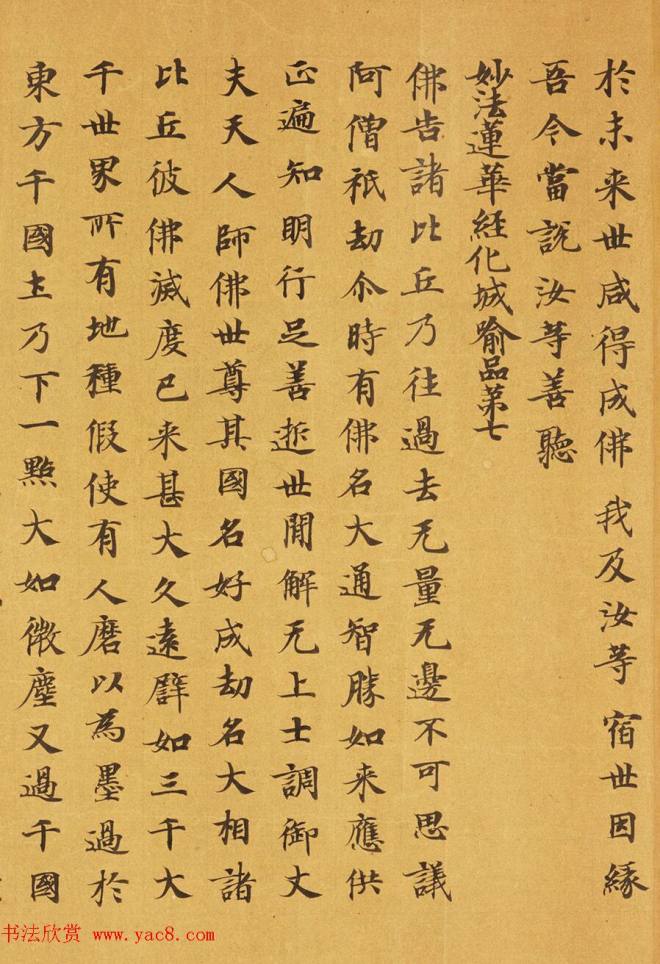 於未来世咸得成佛 我及汝等 宿世因緣
吾今當說汝等善聽
妙法蓮華經化城喻品第七
佛告諸比丘乃往過去无量无邊不可思議
阿僧祇劫尒時有佛名大通智勝如来應供
正遍知明行足善逝世間解无上士調御丈
夫天人師佛世尊其國名好成劫名大相諸
比丘彼佛滅度已来甚大久遠譬如三千大
千世界所有地種假使有人磨以為墨過於
東方千國土乃下一點大如微塵又過千國
书法欣赏 www.yac8.com